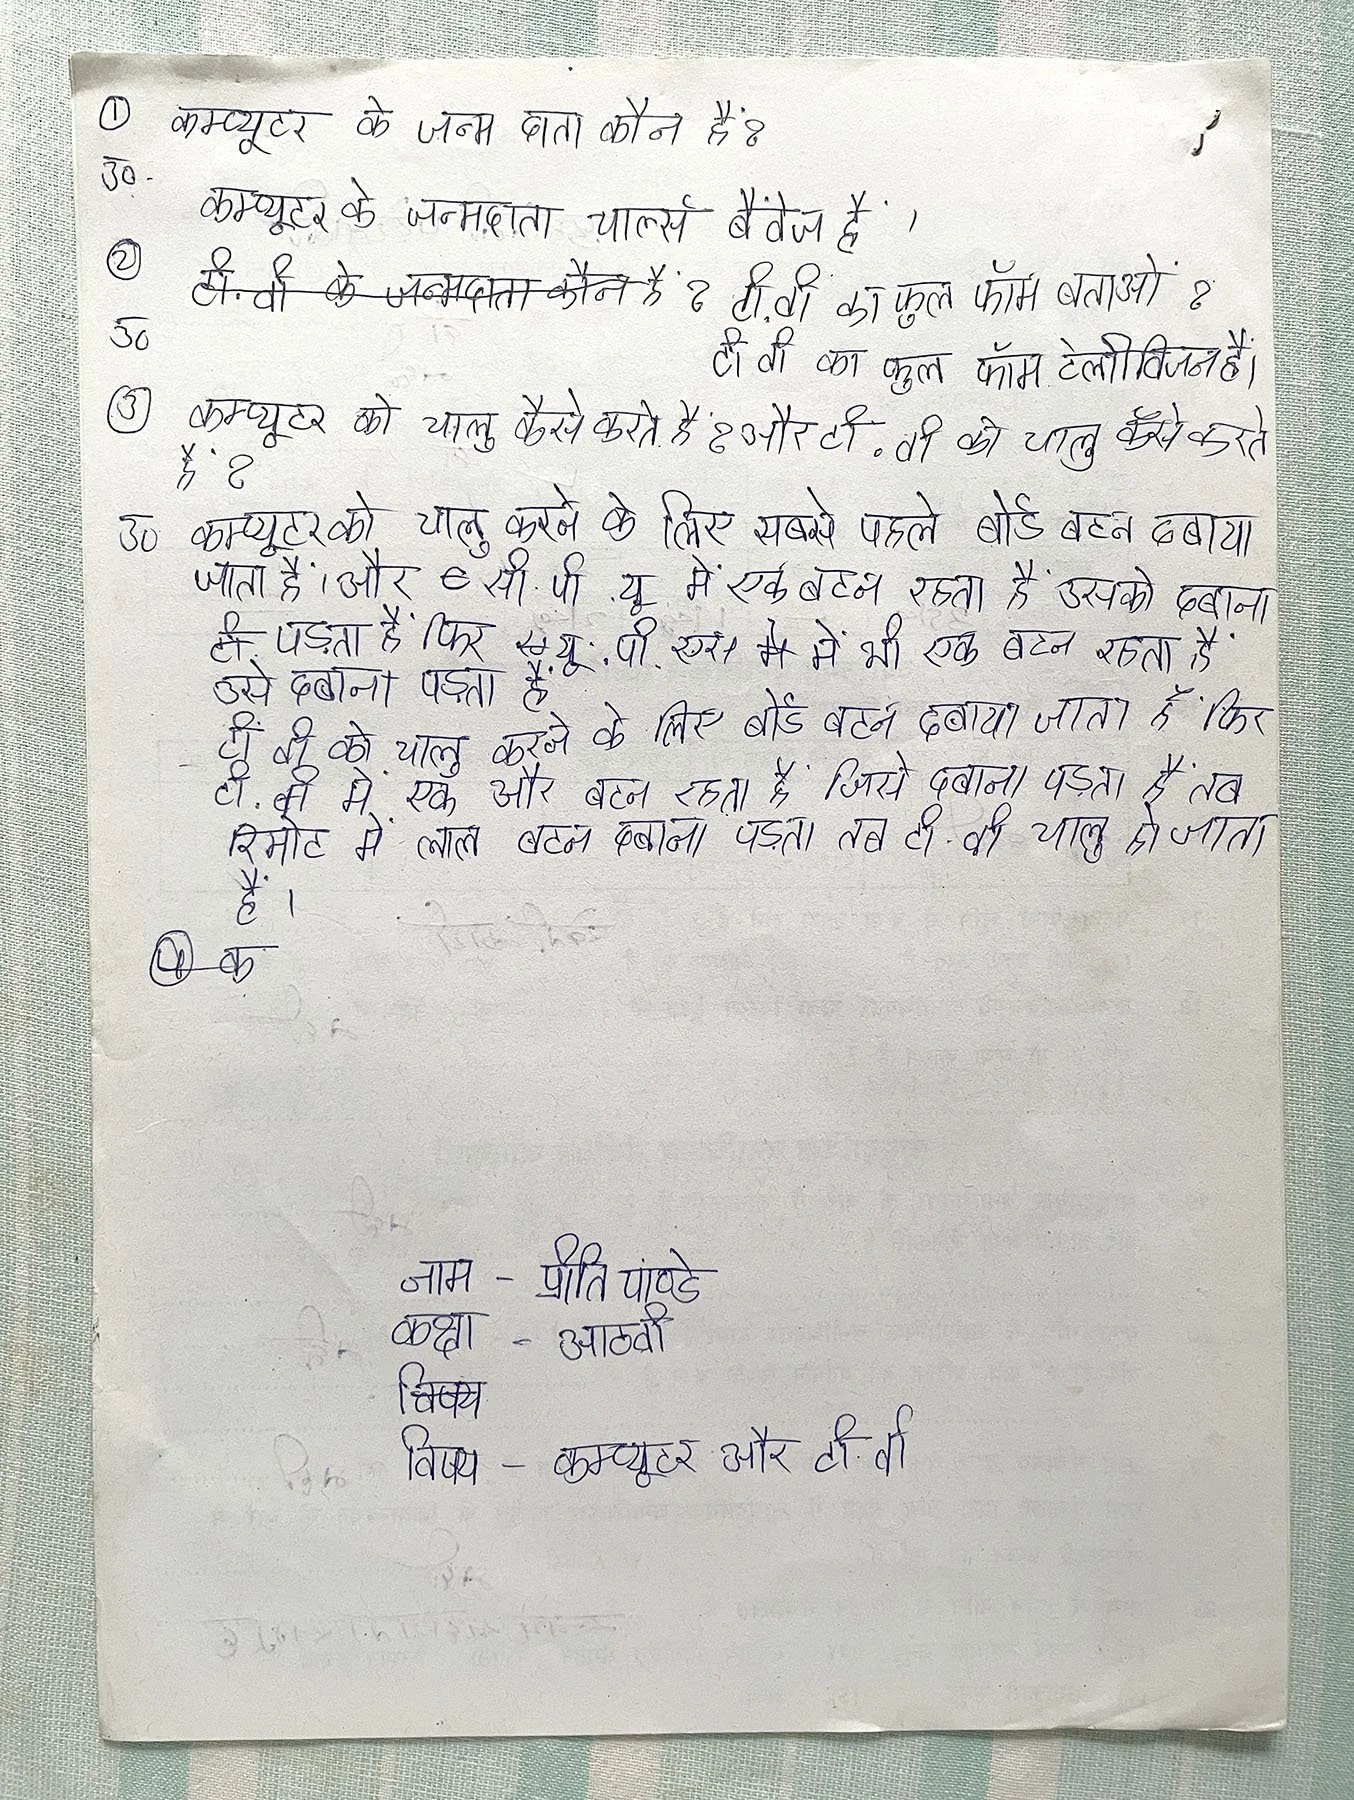 ① कम्प्यूटर के जन्म दाता कौन हैं?
उ०.
कम्प्यूटर के जन्मदाता चार्ल्स बैंवेज हैं ।
② टी.वी के जन्मदाता कौन हैं ? टी.वी का फुल फॉम बताओं ?
उ०
टी वी का फुल फॉम टेलीविजन हैं।
③ कम्प्यूटर को चालु कैसे करते हैं ? और टी . वी को चालु कैसे करते
हैं ?
उ० कम्प्यूटर को चालु करने के लिए सबसे पहले बोर्ड बटन दबाया
जाता हैं। और सी. पी .यू में एक बटन रहता हैं उसको दबाना
टी. पड़ता हैं फिर यू. .पी. एस में भी एक बटन रहता हैं
उसे दबाना पड़ता हैं
टीं वी को चालु करने के लिए बोर्ड बटन दबाया जाता हैं फिर
टी. वी में एक और बटन रहता हैं जिसे दबाना पड़ता हैं तब
रिमोट में लाल बटन दबाना पड़ता तब टी. वी चालु हो जाता
हैं ।
④ क
नाम - प्रीति पाण्डे
कक्षा - आठवी
विषय
विषय - कम्प्यूटर और टी. वी